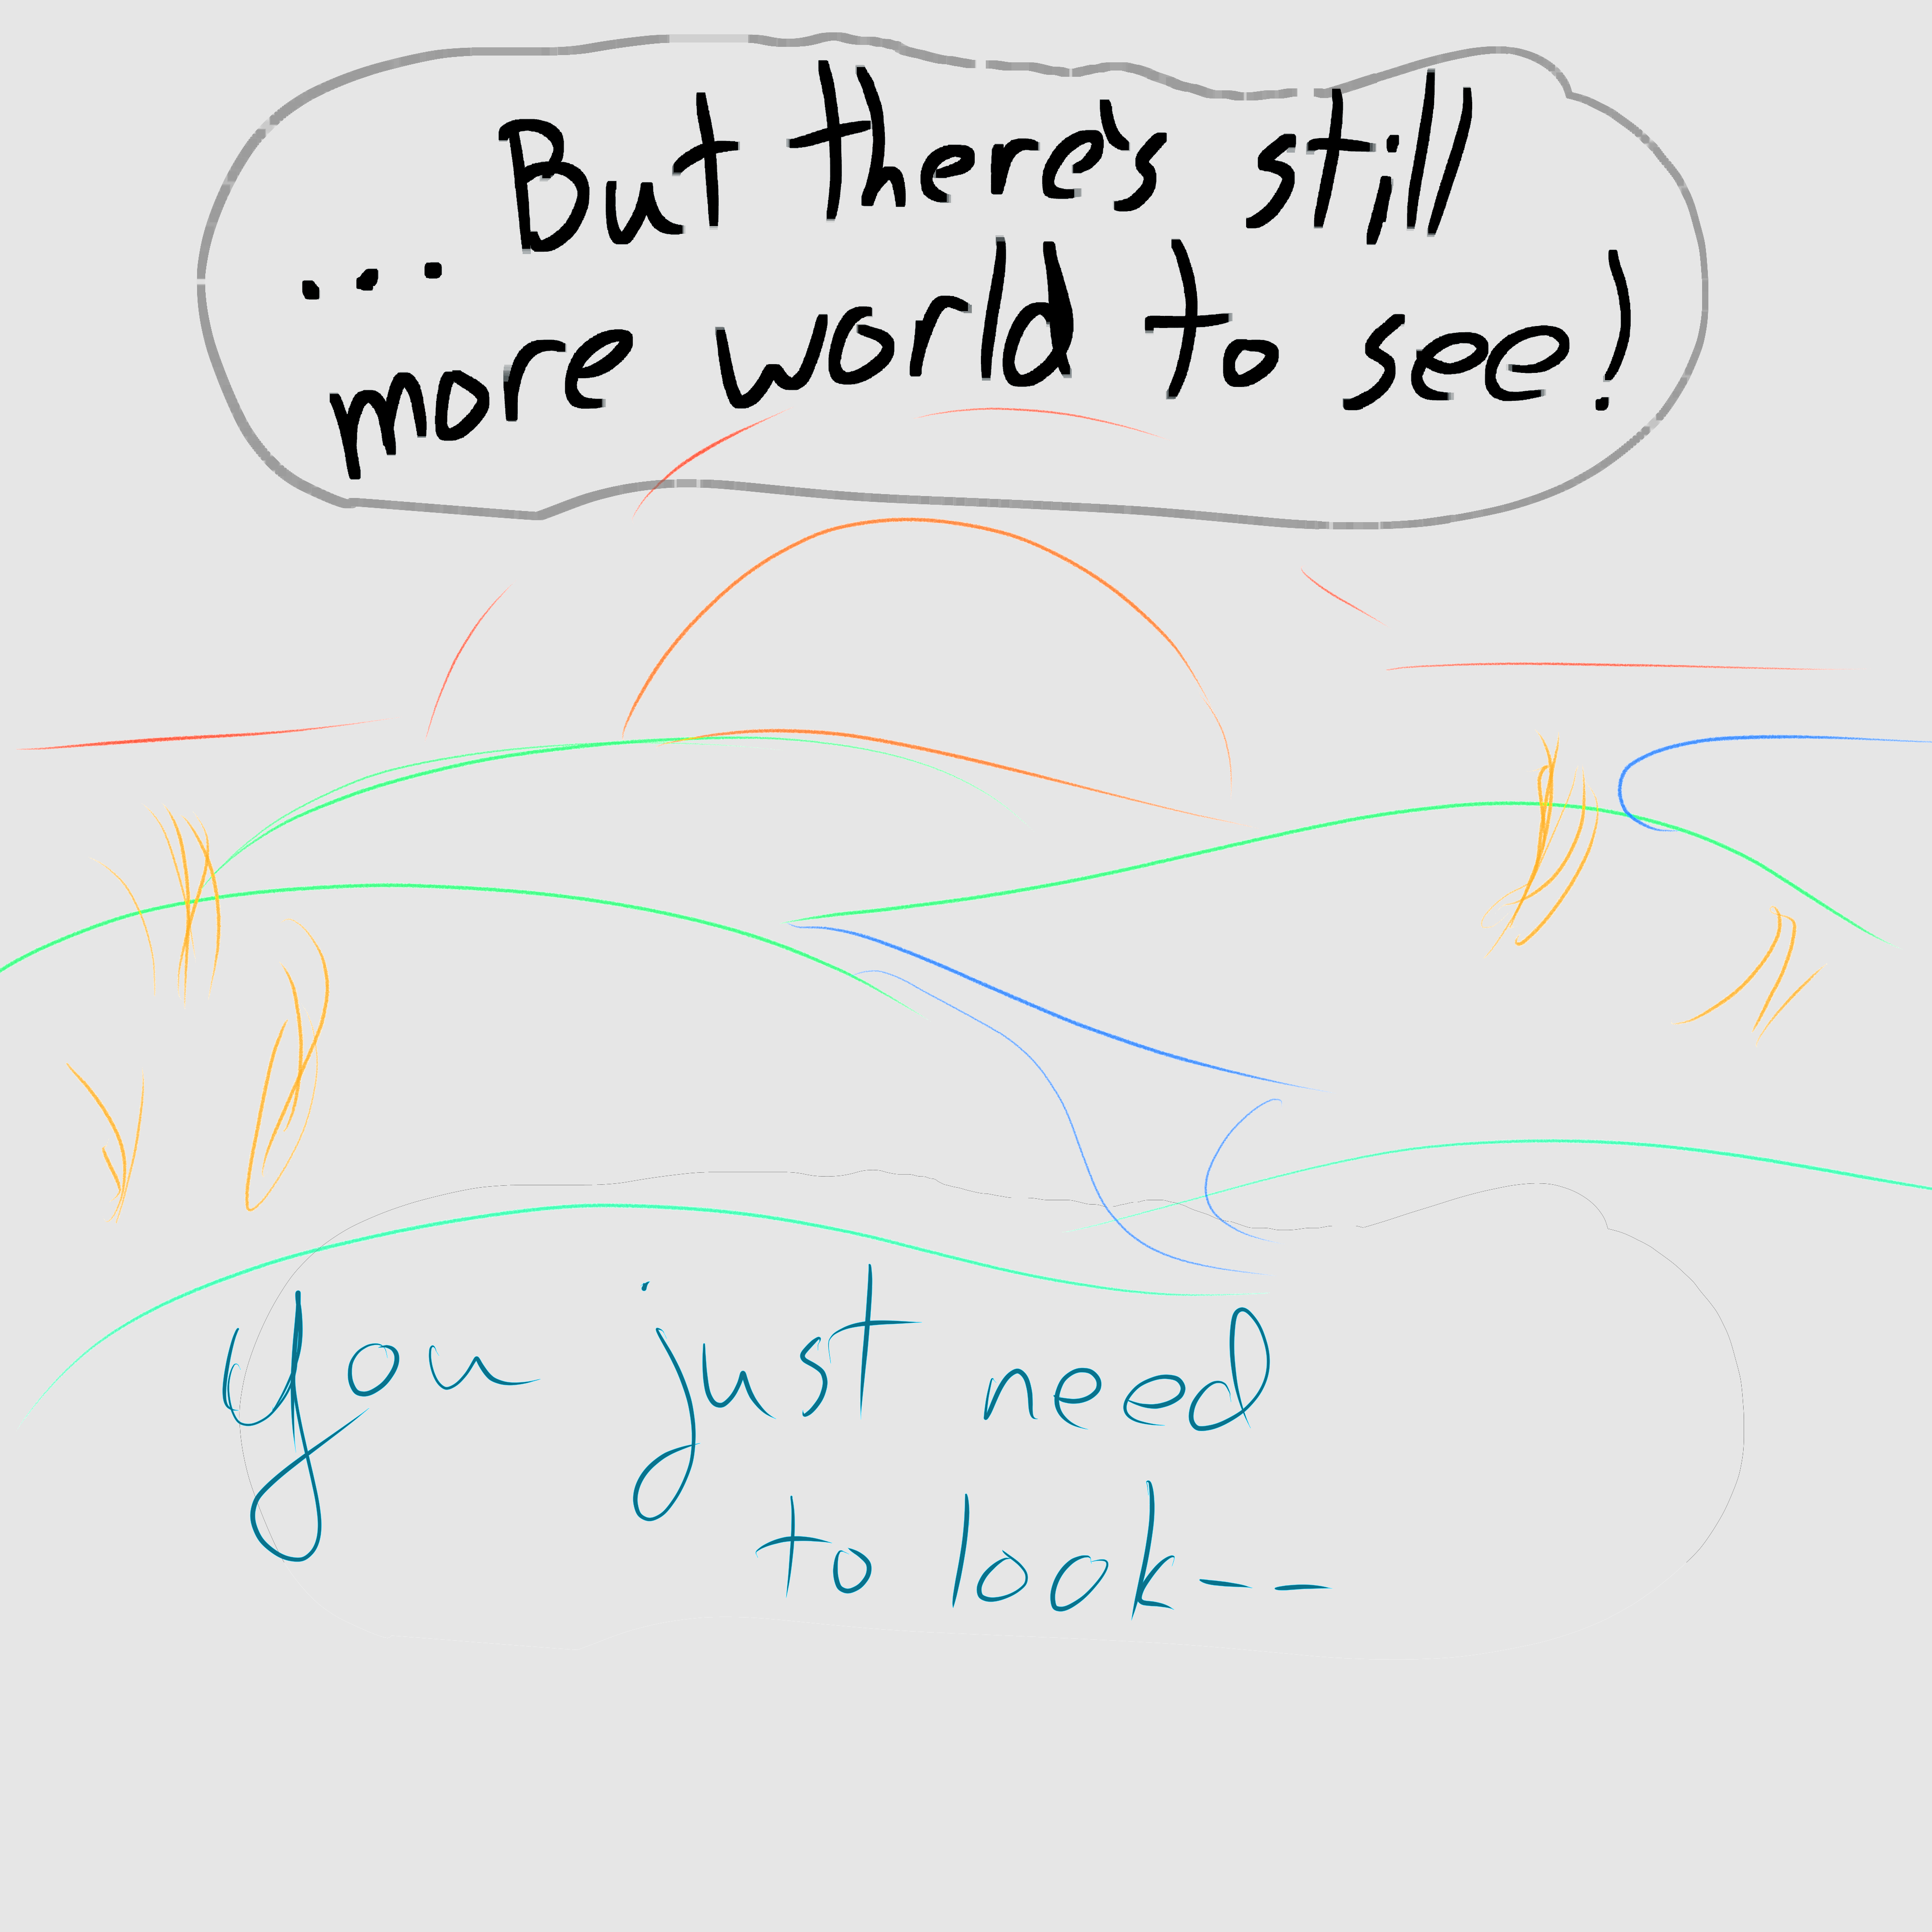 ... But there's still
more world to see!
you just need
to look---